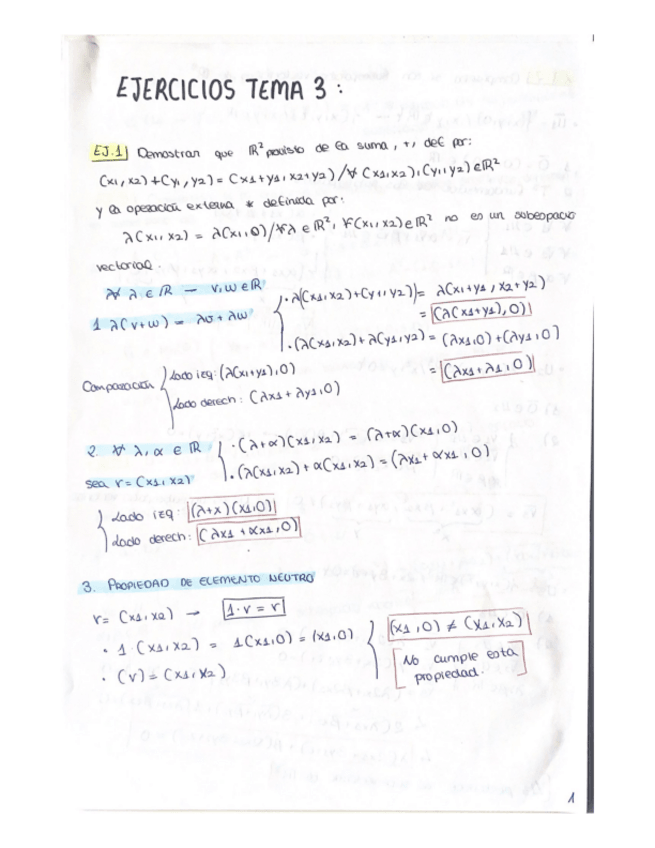 EJERCICIOS TEMA 3:
EJ.1 Demostrar que ℝ² provisto de la suma, +, def por:
(x1, x2) + (y1, y2) = (x1+y1, x2+y2) / ∀ (x1, x2), (y1, y2) ∈ ℝ²
y la operación externa * definida por:
λ(x1, x2) = λ(x1, 0) / ∀λ ∈ ℝ², ∀(x1, x2) ∈ ℝ² no es un subespacio
vectorial.
∀ λ ∈ ℝ — v, w ∈ ℝ
1 λ(v+w) = λv + λw
· λ((x1, x2) + (y1, y2)) = λ(x1+y1, x2+y2)
= (λ(x1+y1), 0)
· (λ(x1, x2) + λ(y1, y2) = (λx1, 0) + (λy1, 0)
= (λx1 + λ1, 0)
Comparación
Lado izq: (λ(x1+y1), 0)
Lado derech: (λx1 + λy1, 0)
2. ∀ λ, α ∈ ℝ
sea v = (x1, x2)
· (λ+α)(x1, x2) = (λ+α)(x1, 0)
· (λ(x1, x2) + α(x1, x2) = (λx1 + αx1, 0)
Lado izq: (λ+x)(x1, 0)
Lado derech: (λx1 + αx1, 0)
3. PROPIEDAD DE ELEMENTO NEUTRO
v = (x1, x2) → 1·v = v
· 1·(x1, x2) = 1(x1, 0) = (x1, 0)
· (v) = (x1, x2)
(x1, 0) ≠ (x1, x2)
No cumple esta
propiedad.
1